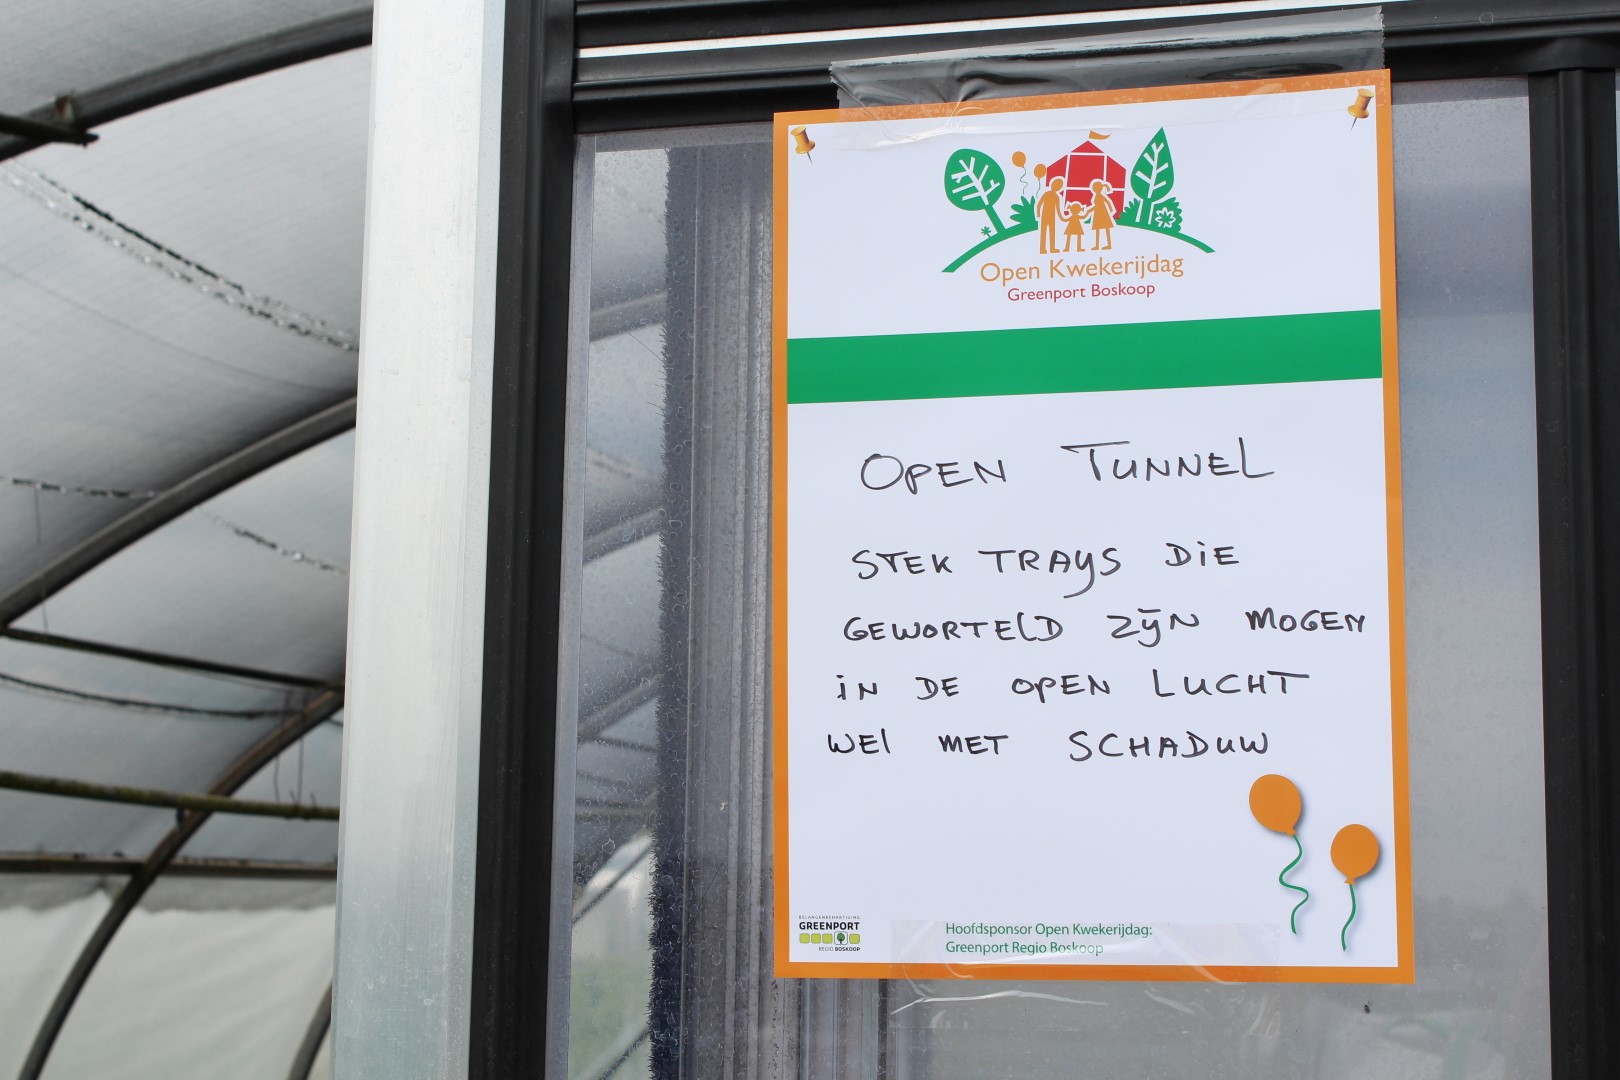 Open Kwekerijdag
Greenport Boskoop
OPEN TUNNEL
STEK TRAYS DIE
GEWORTELD ZIJN MOGEN
IN DE OPEN LUCHT
WEL MET SCHADUW
BELANGENBEHARTIGING
GREENPORT
REGIO BOSKOOP
Hoofdsponsor Open Kwekerijdag:
Greenport Regio Boskoop